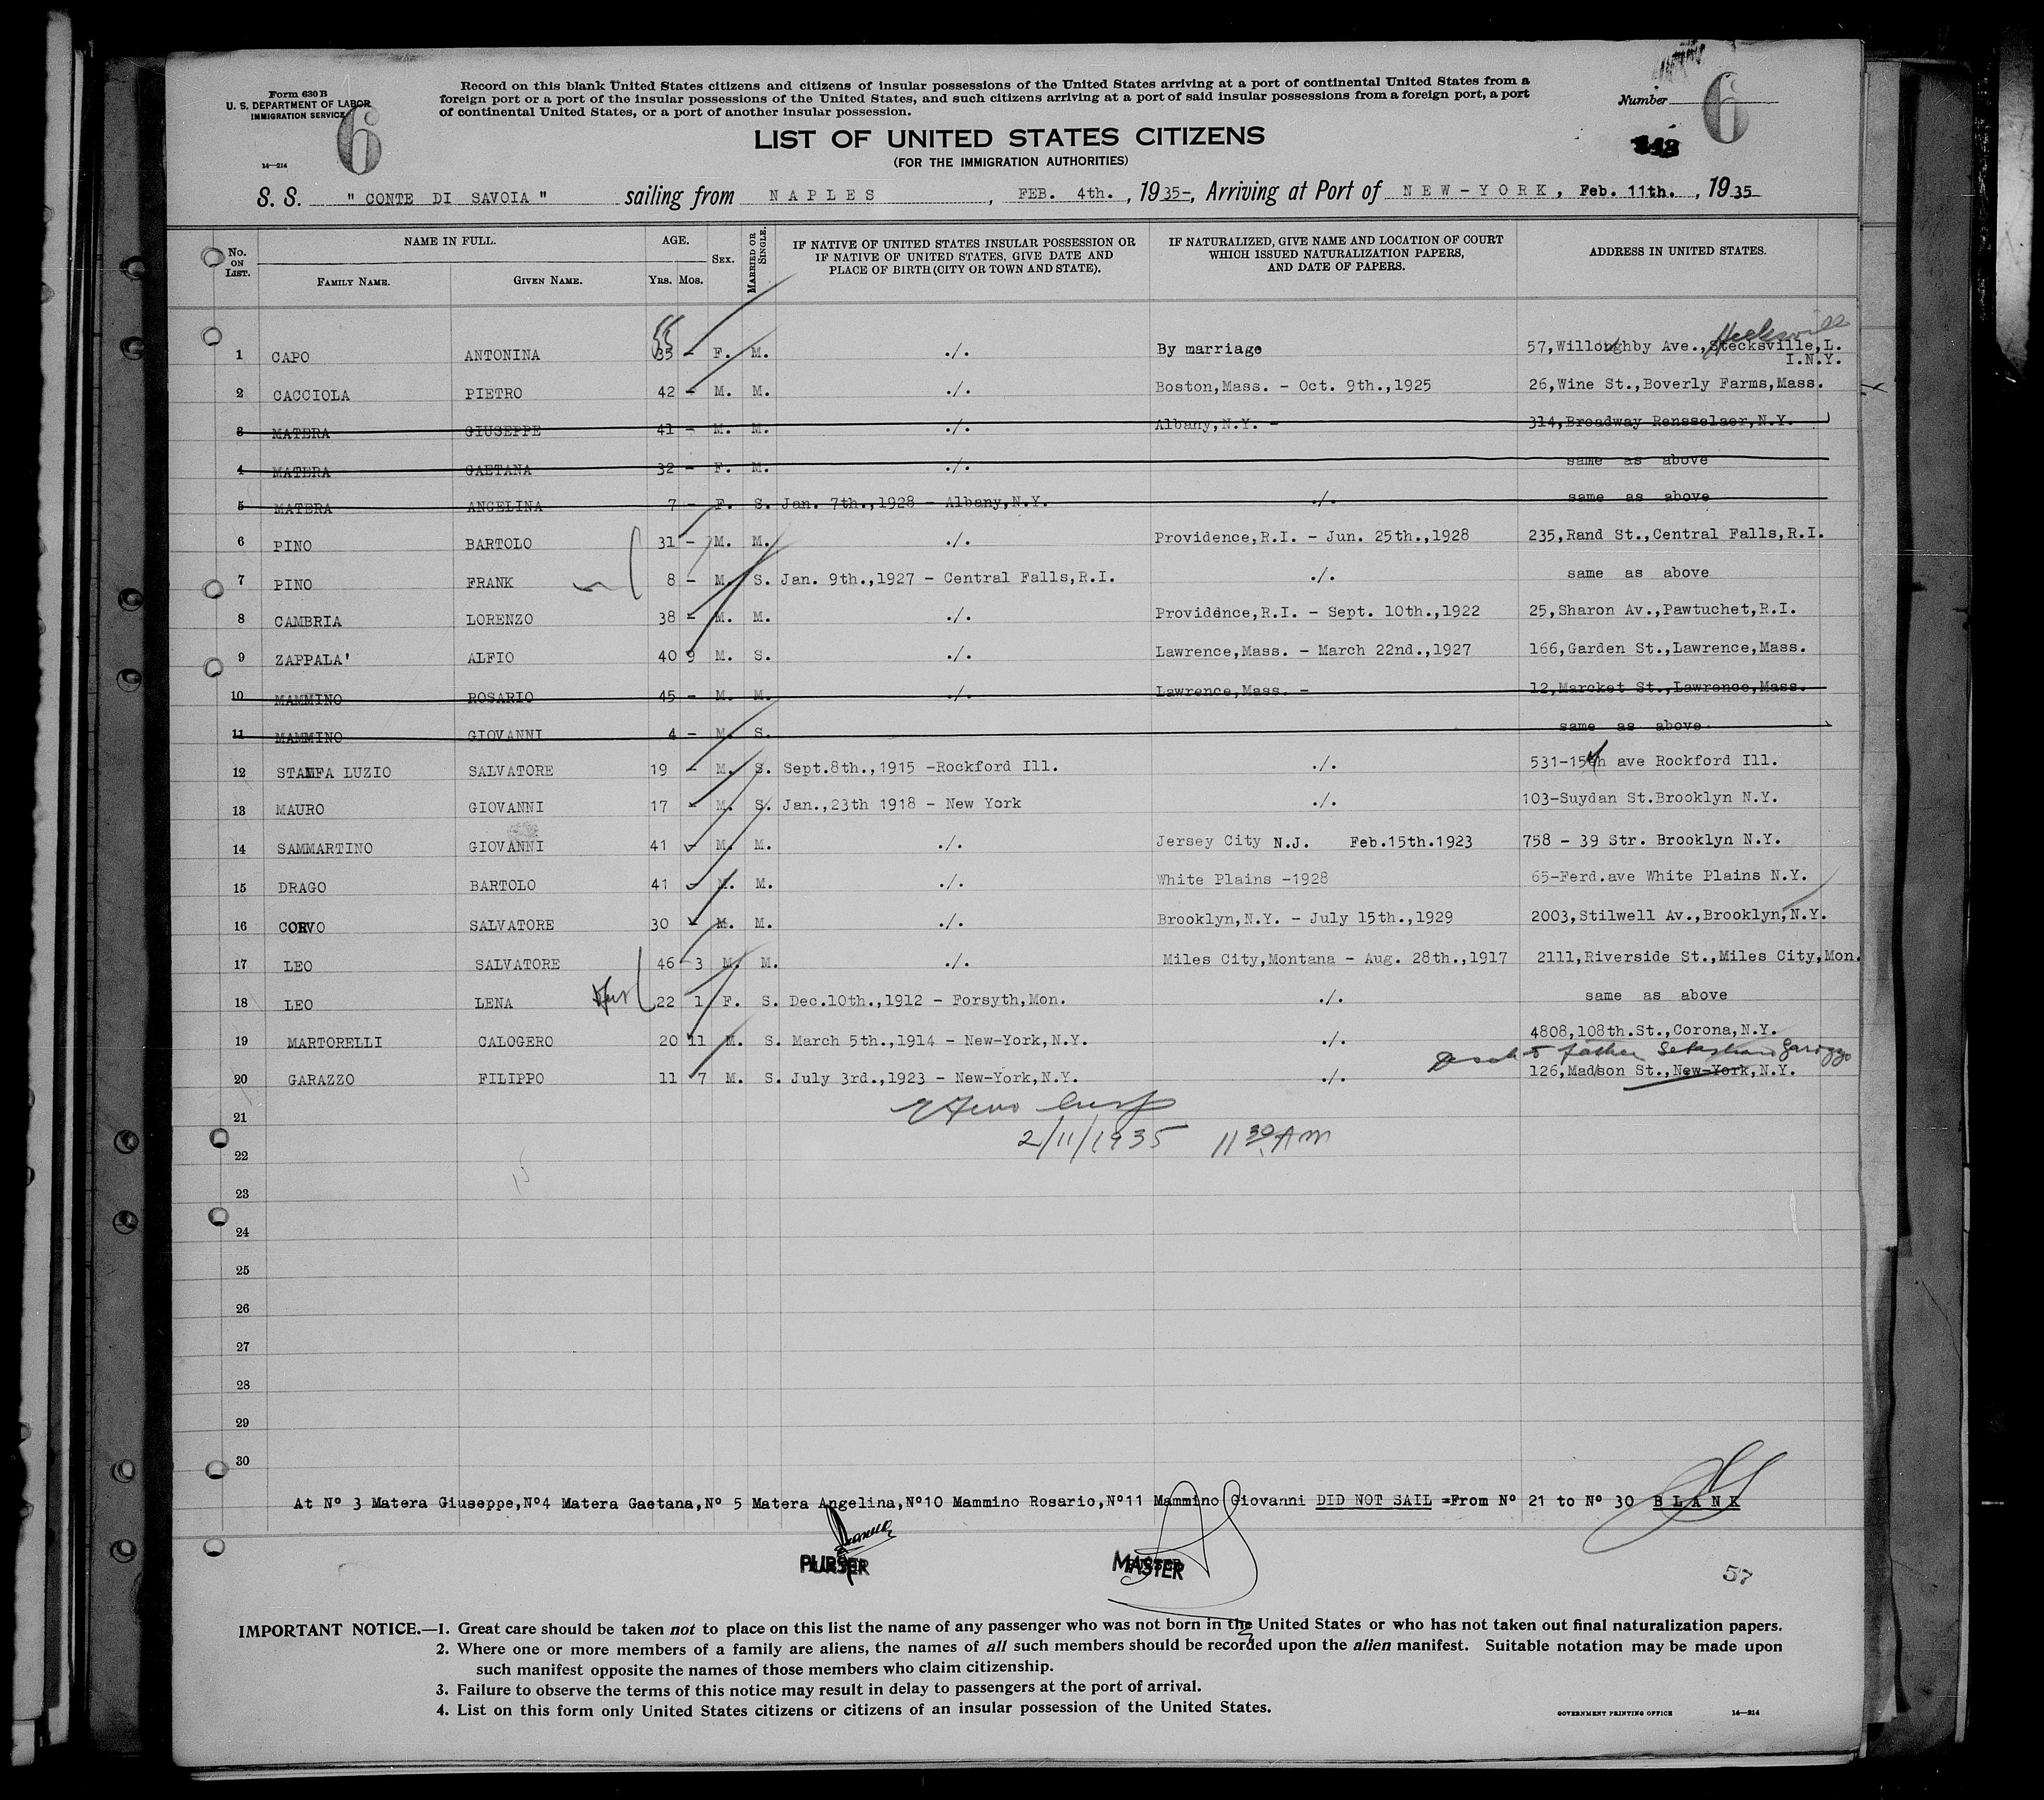 Form 630 B
U. S. DEPARTMENT OF LABOR
IMMIGRATION SERVICE
14—214
6
Record on this blank United States citizens and citizens of insular possessions of the United States arriving at a port of continental United States from a
foreign port or a port of the insular possessions of the United States, and such citizens arriving at a port of said insular possessions from a foreign port, a port
of continental United States, or a port of another insular possession.
Number
6
LIST OF UNITED STATES CITIZENS
(FOR THE IMMIGRATION AUTHORITIES)
S. S. "CONTE DI SAVOIA" sailing from NAPLES, FEB. 4th., 1935-, Arriving at Port of NEW-YORK, Feb. 11th., 1935
No. ON LIST. NAME IN FULL. FAMILY NAME. GIVEN NAME. AGE. YRS. MOS. SEX. MARRIED OR SINGLE. IF NATIVE OF UNITED STATES INSULAR POSSESSION OR IF NATIVE OF UNITED STATES, GIVE DATE AND PLACE OF BIRTH (CITY OR TOWN AND STATE). IF NATURALIZED, GIVE NAME AND LOCATION OF COURT WHICH ISSUED NATURALIZATION PAPERS, AND DATE OF PAPERS. ADDRESS IN UNITED STATES.
55 Hecksville
1 CAPO ANTONINA 35 - F. M. ./. By marriage 57,Willoughby Ave.,Stecksville,L.
I.N.Y.
2 CACCIOLA PIETRO 42 - M. M. ./. Boston,Mass. - Oct. 9th.,1925 26,Wine St.,Boverly Farms,Mass.
3 MATERA GIUSEPPE 41 - M. M. ./. Albany,N.Y. - 314,Broadway Rensselaer,N.Y.
4 MATERA GAETANA 32 - F. M. ./. same as above
5 MATERA ANGELINA 7 - F. S. Jan. 7th.,1928 - Albany,N.Y. ./. same as above
6 PINO BARTOLO 31 - M. M. ./. Providence,R.I. - Jun. 25th.,1928 235,Rand St.,Central Falls,R.I.
7 PINO FRANK 8 - M. S. Jan. 9th.,1927 - Central Falls,R.I. ./. same as above
8 CAMBRIA LORENZO 38 - M. M. ./. Providence,R.I. - Sept. 10th.,1922 25,Sharon Av.,Pawtuchet,R.I.
9 ZAPPALA' ALFIO 40 9 M. S. ./. Lawrence,Mass. - March 22nd.,1927 166,Garden St.,Lawrence,Mass.
10 MAMMINO ROSARIO 45 - M. M. ./. Lawrence,Mass. - 12,Marcket St.,Lawrence,Mass.
11 MAMMINO GIOVANNI 4 - M. S. same as above
12 STAMFA LUZIO SALVATORE 19 - M. S. Sept.8th.,1915 -Rockford Ill. ./. 531-15th ave Rockford Ill.
13 MAURO GIOVANNI 17 - M. S. Jan.,23th 1918 - New York ./. 103-Suydan St.Brooklyn N.Y.
14 SAMMARTINO GIOVANNI 41 - M. M. ./. Jersey City N.J. Feb.15th.1923 758 - 39 Str. Brooklyn N.Y.
15 DRAGO BARTOLO 41 - M. M. ./. White Plains -1928 65-Ferd.ave White Plains N.Y.
16 CORVO SALVATORE 30 - M. M. ./. Brooklyn,N.Y. - July 15th.,1929 2003,Stilwell Av.,Brooklyn,N.Y.
17 LEO SALVATORE 46 3 M. M. ./. Miles City,Montana - Aug. 28th.,1917 2111,Riverside St.,Miles City,Mon.
18 LEO LENA 22 1 F. S. Dec.10th.,1912 - Forsyth,Mon. ./. same as above
19 MARTORELLI CALOGERO 20 11 M. S. March 5th.,1914 - New-York,N.Y. ./. 4808,108th.St.,Corona,N.Y.
to father Sebastiano
20 GARAZZO FILIPPO 11 7 M. S. July 3rd.,1923 - New-York,N.Y. ./. 126,Madison St.,New-York,N.Y.
21
2/11/1935 11 30 AM
22
23
24
25
26
27
28
29
30
At Nº 3 Matera Giuseppe,Nº4 Matera Gaetana,Nº 5 Matera Angelina,Nº10 Mammino Rosario,Nº11 Mammino Giovanni DID NOT SAIL =From Nº 21 to Nº 30 BLANK
PURSER
MASTER
57
IMPORTANT NOTICE.—1. Great care should be taken not to place on this list the name of any passenger who was not born in the United States or who has not taken out final naturalization papers.
2. Where one or more members of a family are aliens, the names of all such members should be recorded upon the alien manifest. Suitable notation may be made upon
such manifest opposite the names of those members who claim citizenship.
3. Failure to observe the terms of this notice may result in delay to passengers at the port of arrival.
4. List on this form only United States citizens or citizens of an insular possession of the United States.
GOVERNMENT PRINTING OFFICE 14—214